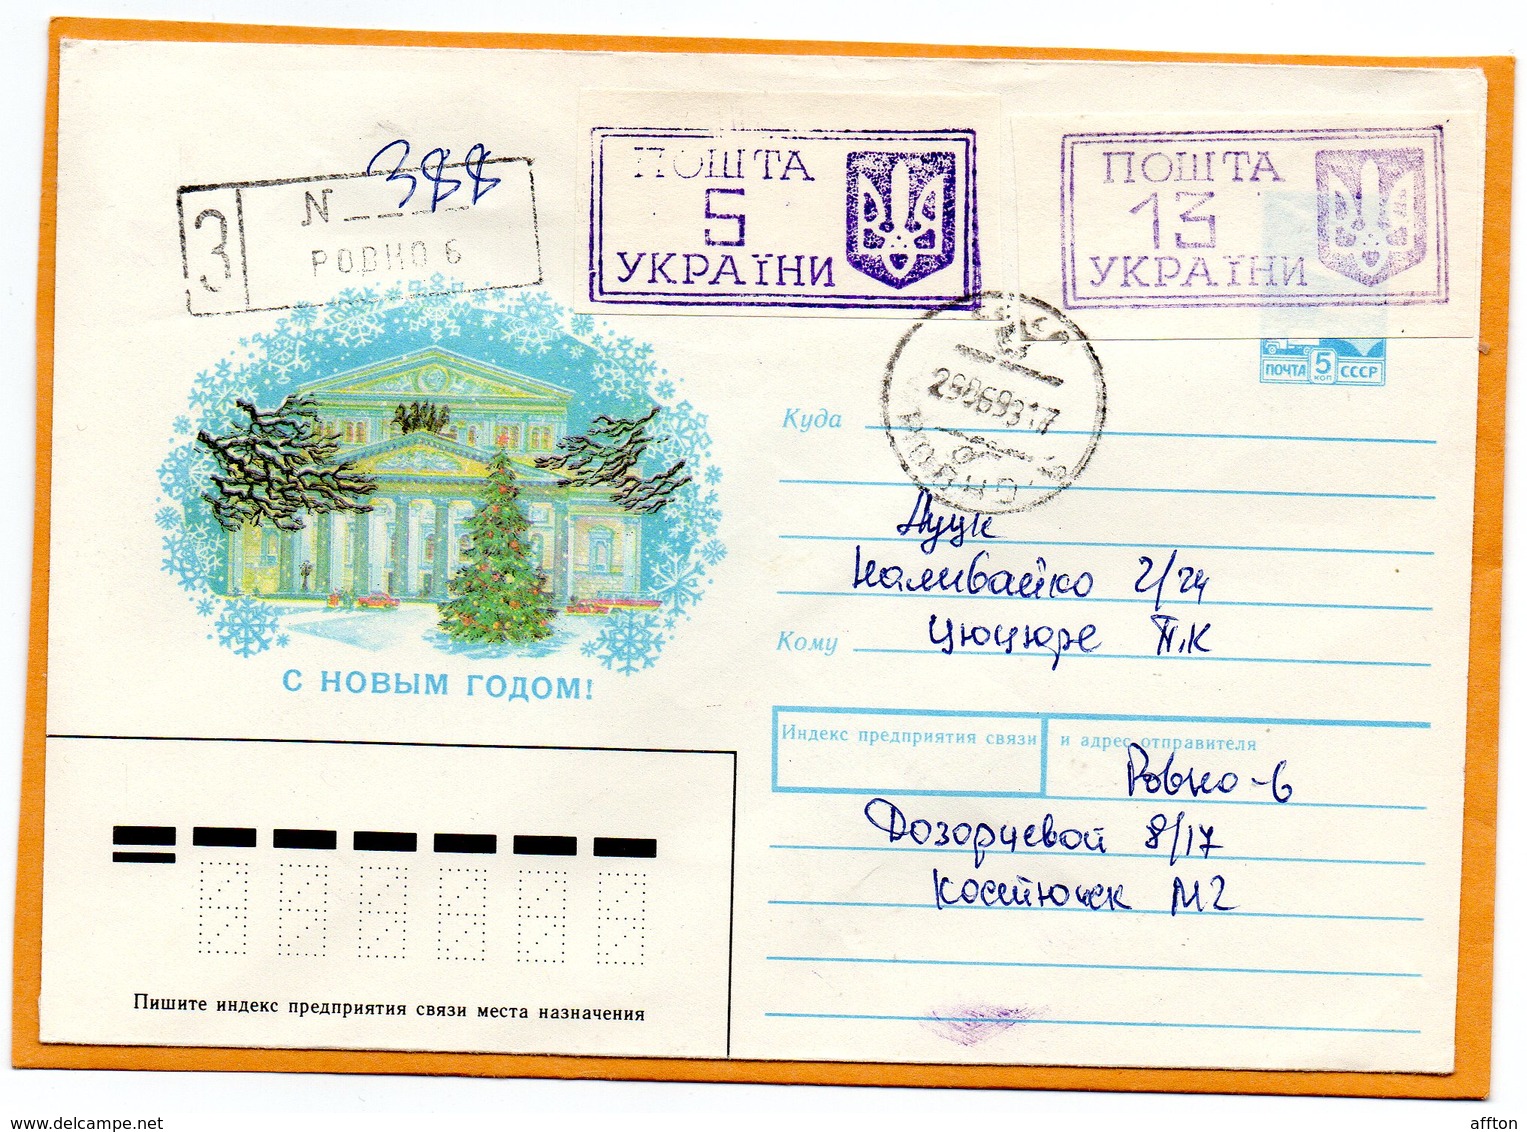 З
N 388
РОВНО 6
ПОШТА
5
УКРАЇНИ
ПОШТА
13
УКРАЇНИ
ПОЧТА 5 КОП СССР
29069317
РОВНО
Куда
Луцк
Наливайко 2/24
Кому
Цюцюре П.К
С НОВЫМ ГОДОМ!
Индекс предприятия связи и адрес отправителя
Ровно-6
Дозорцевой 8/17
М2
Пишите индекс предприятия связи места назначения
www.delcampe.net
affton